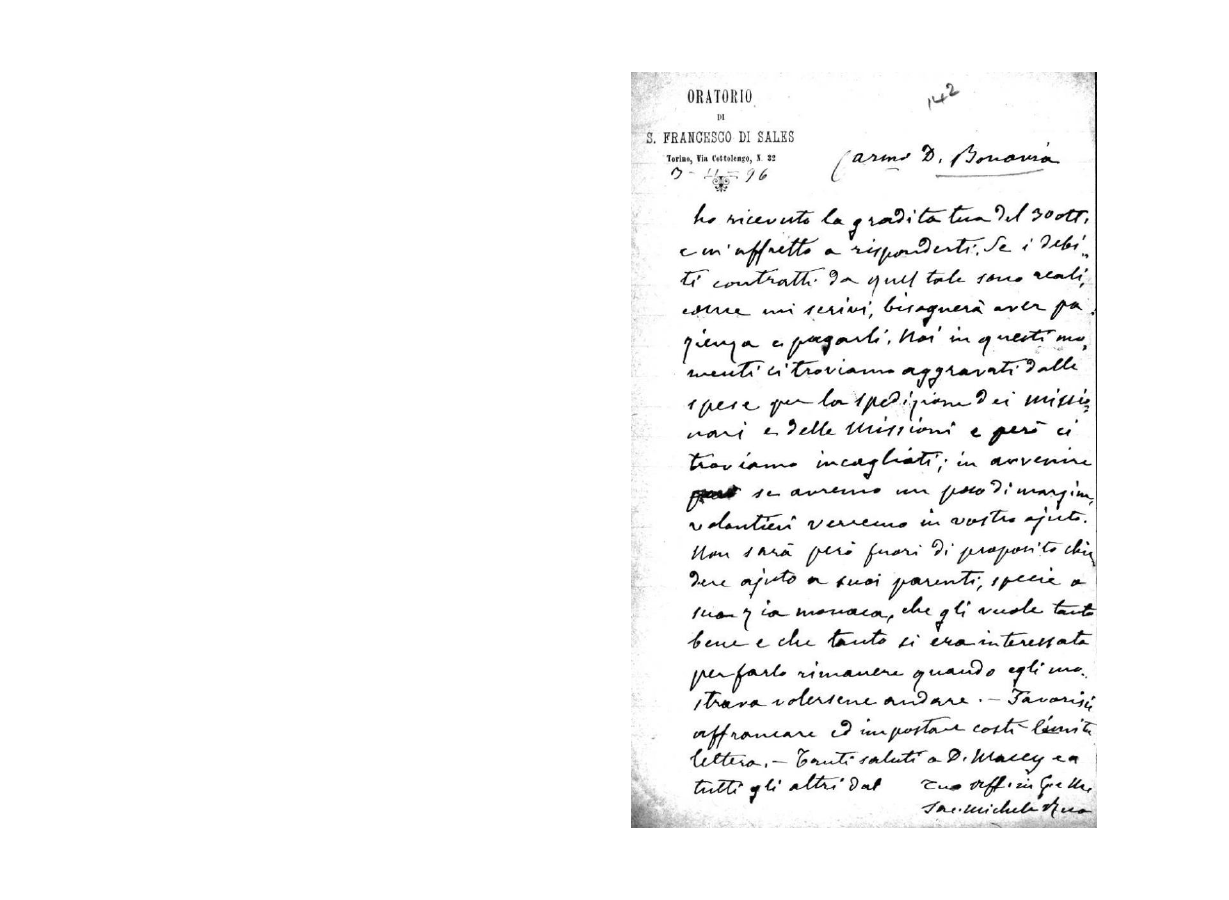 ORATORIO
DI
S. FRANCESCO DI SALES
Torino, Via Cottolengo, N. 32
3-11-96
142
Carmo D. Bonavia
ho ricevuto la gradita tua del 30 ott.
e m'affretto a risponderti. Se i debi-
ti contratti da quel tale sono reali,
come mi scrivi, bisognerà aver pa
zienza e pagarli. Noi in questi mo
menti ci troviamo aggravati dalle
spese per la spedizione dei missio
nari e delle Missioni e però ci
troviamo incagliati; in avvenire
se avremo un poco di margine,
volontieri verremo in vostro ajuto.
Non sarà però fuori di proposito chie
dere ajuto a suoi parenti, specie a
sua zia monaca, che gli vuole tanto
bene e che tanto si era interessata
per farlo rimanere quando egli mo-
strava volersene andare. - Favorisci
affrancare ed impostare costì l'unita
lettera. - Tanti saluti a D. Macey e a
tutti gli altri dal tuo aff. in G e M.
Sac. Michele Rua